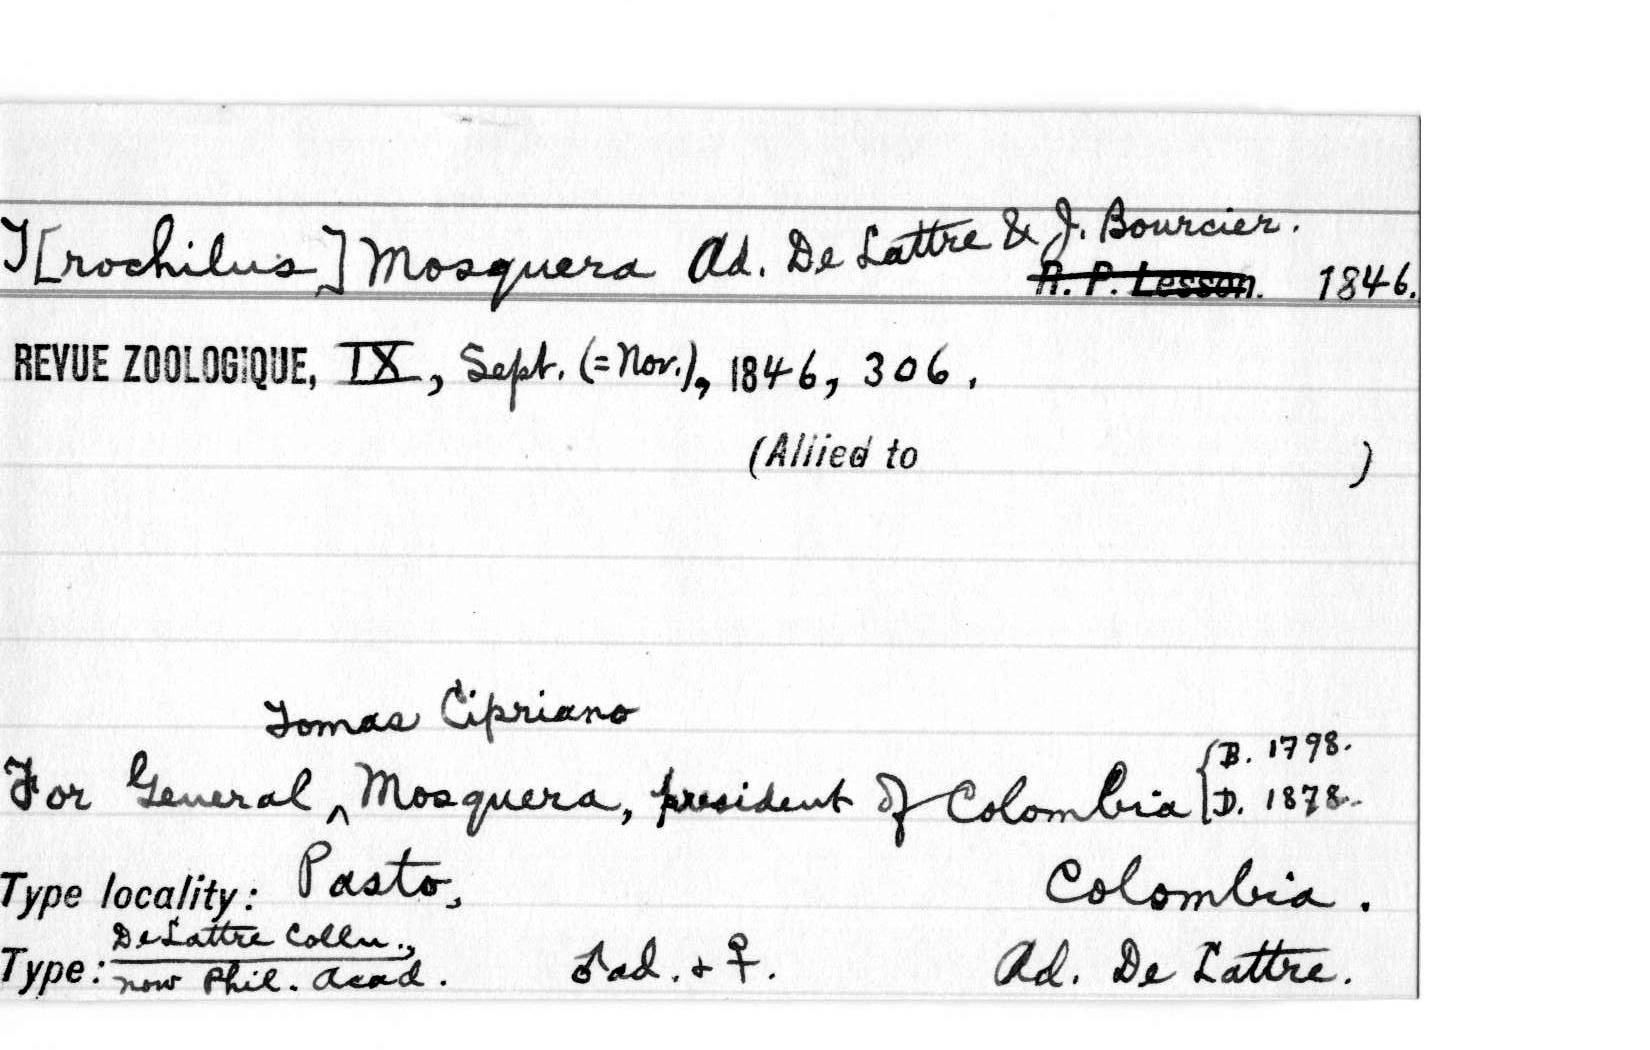 T[rochilus] Mosquera Ad. De Lattre & J. Bourcier.
R. P. Lesson. 1846.
REVUE ZOOLOGIQUE, IX, Sept. (=Nov.), 1846, 306.
(Allied to )
Tomas Cipriano
For General ^ Mosquera, president of Colombia { B. 1798.
D. 1878.
Type locality: Pasto, Colombia.
De Lattre Colln.,
Type: now Phil. Acad. ♂ ad. & ♀. Ad. De Lattre.